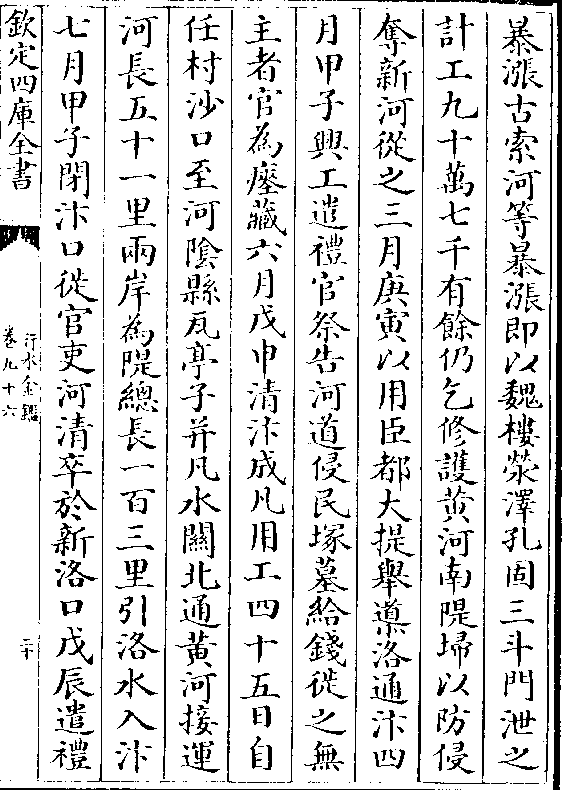 暴漲古索河等暴漲即以魏樓滎澤孔固三斗門泄之
計工九十萬七千有餘仍乞修護黄河南隄埽以防侵
奪新河從之三月庚寅以用臣都大提舉導洛通汴四
月甲子興工遣禮官祭告河道侵民塚墓給錢徙之無
主者官為瘞藏六月戊申清汴成凡用工四十五日自
任村沙口至河陰縣瓦亭子并凡水關北通黄河接運
河長五十一里兩岸為隄總長一百三里引洛水入汴
七月甲子閉汴口徙官吏河清卒於新洛口戊辰遣禮
欽定四庫全書
行水金鑑
卷九十六
二十